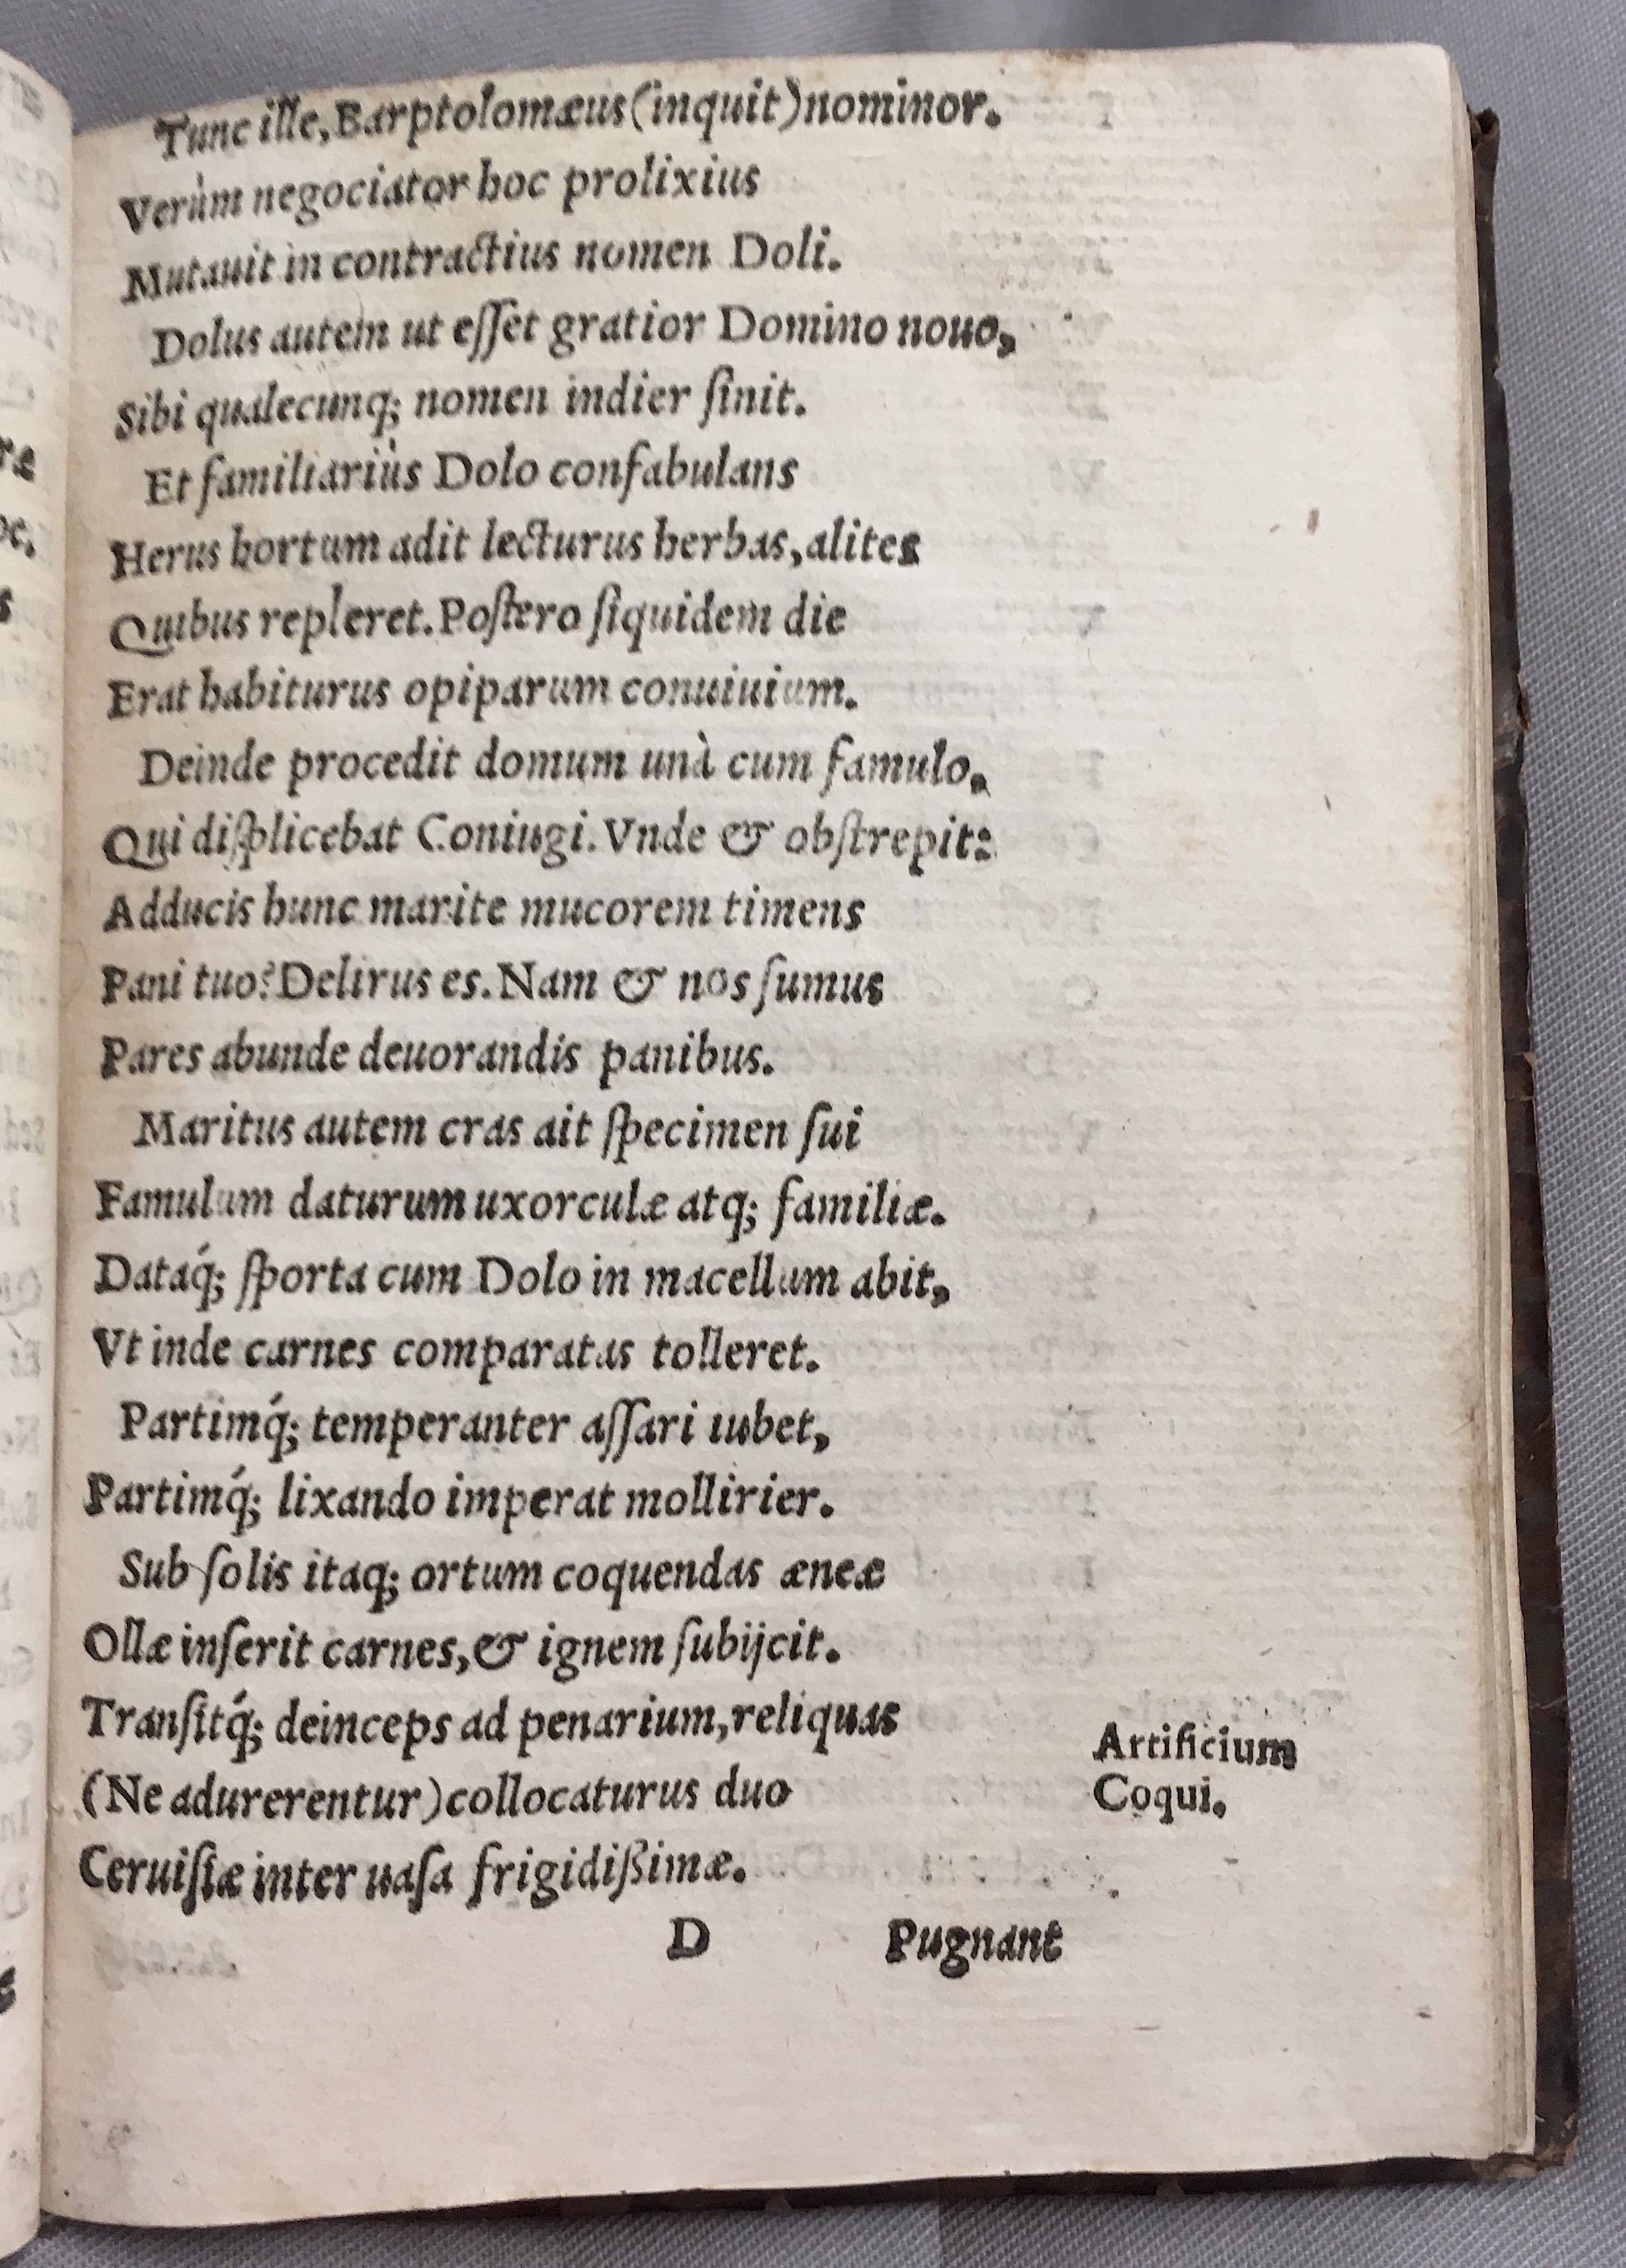 Tunc ille, Barptolomæus (inquit) nominor.
Verùm negociator hoc prolixius
Mutauit in contractius nomen Doli.
Dolus autem ut eſſet gratior Domino nouo,
Sibi qualecunq; nomen indier ſinit.
Et familiariùs Dolo confabulans
Herus hortum adit lecturus herbas, alites
Quibus repleret. Poſtero ſiquidem die
Erat habiturus opiparum conuiuium.
Deinde procedit domum unà cum famulo,
Qui diſplicebat Coniugi. Vnde & obſtrepit:
Adducis hunc marite mucorem timens
Pani tuo? Delirus es. Nam & nos ſumus
Pares abunde deuorandis panibus.
Maritus autem cras ait ſpecimen ſui
Famulum daturum uxorculæ atq; familiæ.
Dataq́; ſporta cum Dolo in macellum abit,
Vt inde carnes comparatas tolleret.
Partimq́; temperanter aſſari iubet,
Partimq́; lixando imperat mollirier.
Sub ſolis itaq; ortum coquendas æneæ
Ollæ inſerit carnes, & ignem ſubijcit.
Tranſitq́; deinceps ad penarium, reliquas
(Ne adurerentur) collocaturus duo
Ceruiſiæ inter uaſa frigidißimæ.
Artificium
Coqui.
D Pugnant